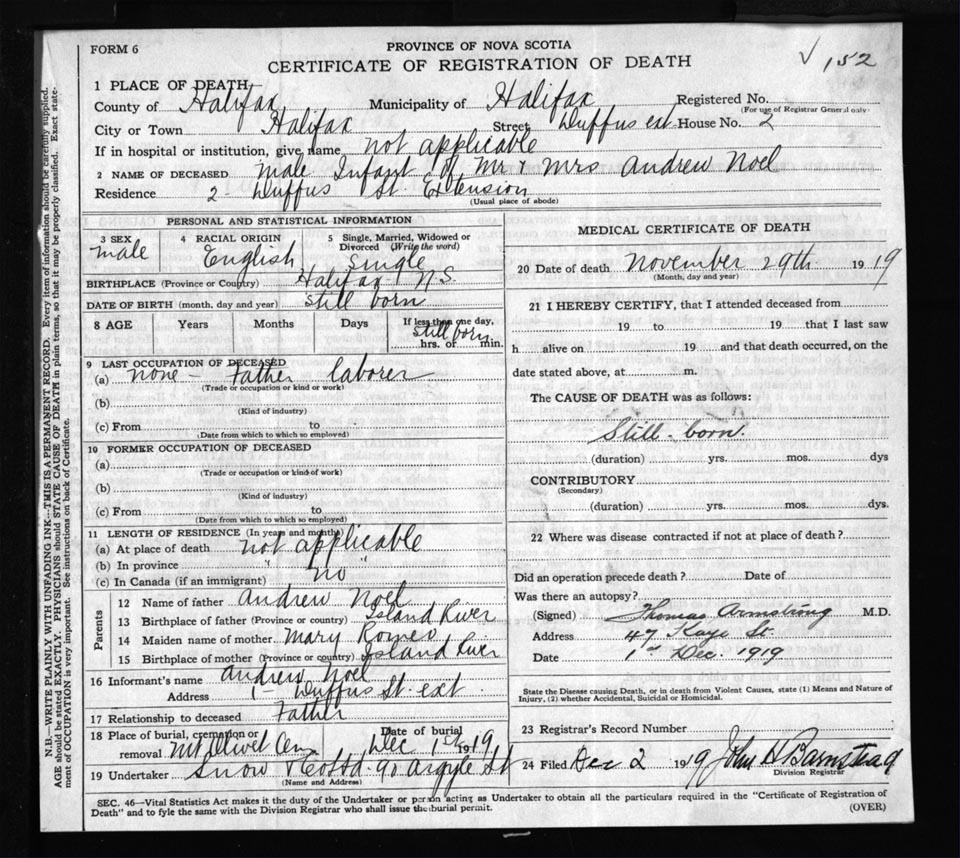 FORM 6
PROVINCE OF NOVA SCOTIA
✓ 152
CERTIFICATE OF REGISTRATION OF DEATH
1 PLACE OF DEATH
County of Halifax Municipality of Halifax Registered No.
(For use of Registrar General only
City or Town Halifax Street Duffus ext House No. 2
If in hospital or institution, give name not applicable
2 NAME OF DECEASED Male Infant of Mr & Mrs Andrew Noel
Residence 2 Duffus St. Extension
(Usual place of abode)
PERSONAL AND STATISTICAL INFORMATION
3 SEX male 4 RACIAL ORIGIN English 5 Single, Married, Widowed or Divorced (Write the word) Single
BIRTHPLACE (Province or Country) Halifax N.S.
DATE OF BIRTH (month, day and year) Still born
8 AGE Years Months Days If less than one day, Still born hrs. or min.
9 LAST OCCUPATION OF DECEASED
(a) none - Father laborer
(Trade or occupation or kind or work)
(b)
(Kind of industry)
(c) From to
(Date from which to which so employed)
10 FORMER OCCUPATION OF DECEASED
(a)
(Trade or occupation or kind of work)
(b)
(Kind of industry)
(c) From to
(Date from which to which so employed)
11 LENGTH OF RESIDENCE (In years and months)
(a) At place of death not applicable
(b) In province " "
(c) In Canada (if an immigrant) no
Parents
12 Name of father Andrew Noel
13 Birthplace of father (Province or country) Island River
14 Maiden name of mother Mary Romeo
15 Birthplace of mother (Province or country) Island River
16 Informant's name Andrew Noel
Address 1 - Duffus St. ext
17 Relationship to deceased Father
18 Place of burial, cremation or removal Mt Olivet Cem Date of burial Dec 1st 1919
19 Undertaker Snow & Co Ltd. 90 Argyle St
(Name and Address)
MEDICAL CERTIFICATE OF DEATH
20 Date of death November 29th 1919
(Month, day and year)
21 I HEREBY CERTIFY, that I attended deceased from
19 to 19 that I last saw
h alive on 19 and that death occurred, on the
date stated above, at m.
The CAUSE OF DEATH was as follows:
Still-born
(duration) yrs. mos. dys
CONTRIBUTORY
(Secondary)
(duration) yrs. mos. dys.
22 Where was disease contracted if not at place of death?
Did an operation precede death? Date of
Was there an autopsy?
(Signed) Thomas Armstrong M.D.
Address 47 Kaye St.
Date 1st Dec. 1919
State the Disease causing Death, or in death from Violent Causes, state (1) Means and Nature of
Injury, (2) whether Accidental, Suicidal or Homicidal.
23 Registrar's Record Number
24 Filed Dec 2 1919 John A Barnstead
Division Registrar
SEC. 46—Vital Statistics Act makes it the duty of the Undertaker or person acting as Undertaker to obtain all the particulars required in the "Certificate of Registration of
Death" and to fyle the same with the Division Registrar who shall issue the burial permit. (OVER)
N.B.—WRITE PLAINLY WITH UNFADING INK—THIS IS A PERMANENT RECORD. Every item of information should be carefully supplied.
AGE should be stated EXACTLY. PHYSICIANS should STATE CAUSE OF DEATH in plain terms, so that it may be properly classified. Exact state-
ment of OCCUPATION is very important. See instructions on back of Certificate.